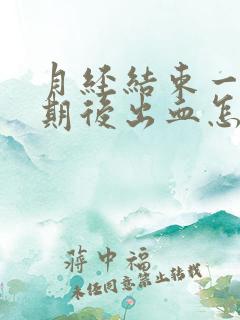 月経結束一
期後出血怎
蔣中福
未任同意禁止转载